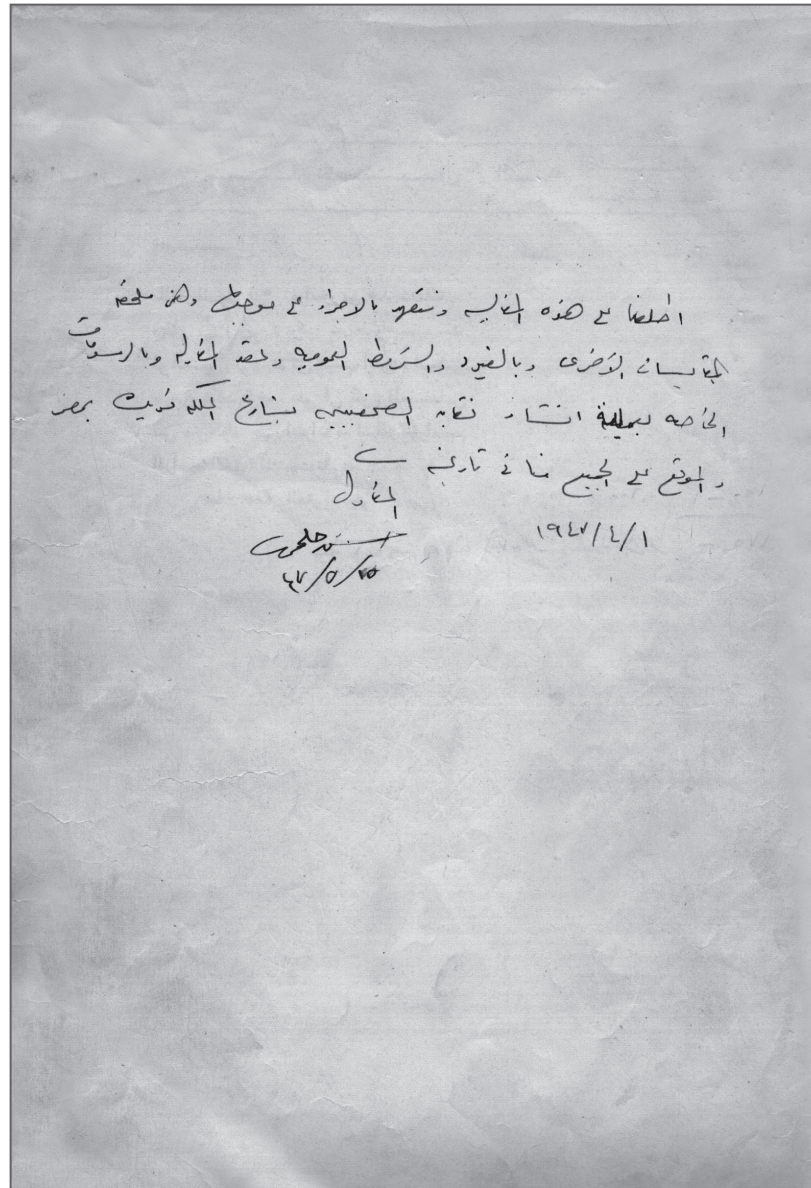 اطلعنا على هذه المقايسه ونتعهد بالاجراء على موجبها وهى ملحقه
بالمقايسات الأخرى وبالقيود والشروط العموميه وبعقد المقاوله وبالرسومات
الخاصه بعملية انشاء نقابه الصحفيين بشارع الملكه نازلى بمصر
والموقع على الجميع منا فى تاريخه
المقاول
١٩٤٧/٤/١
٤٧/٥/٢٥